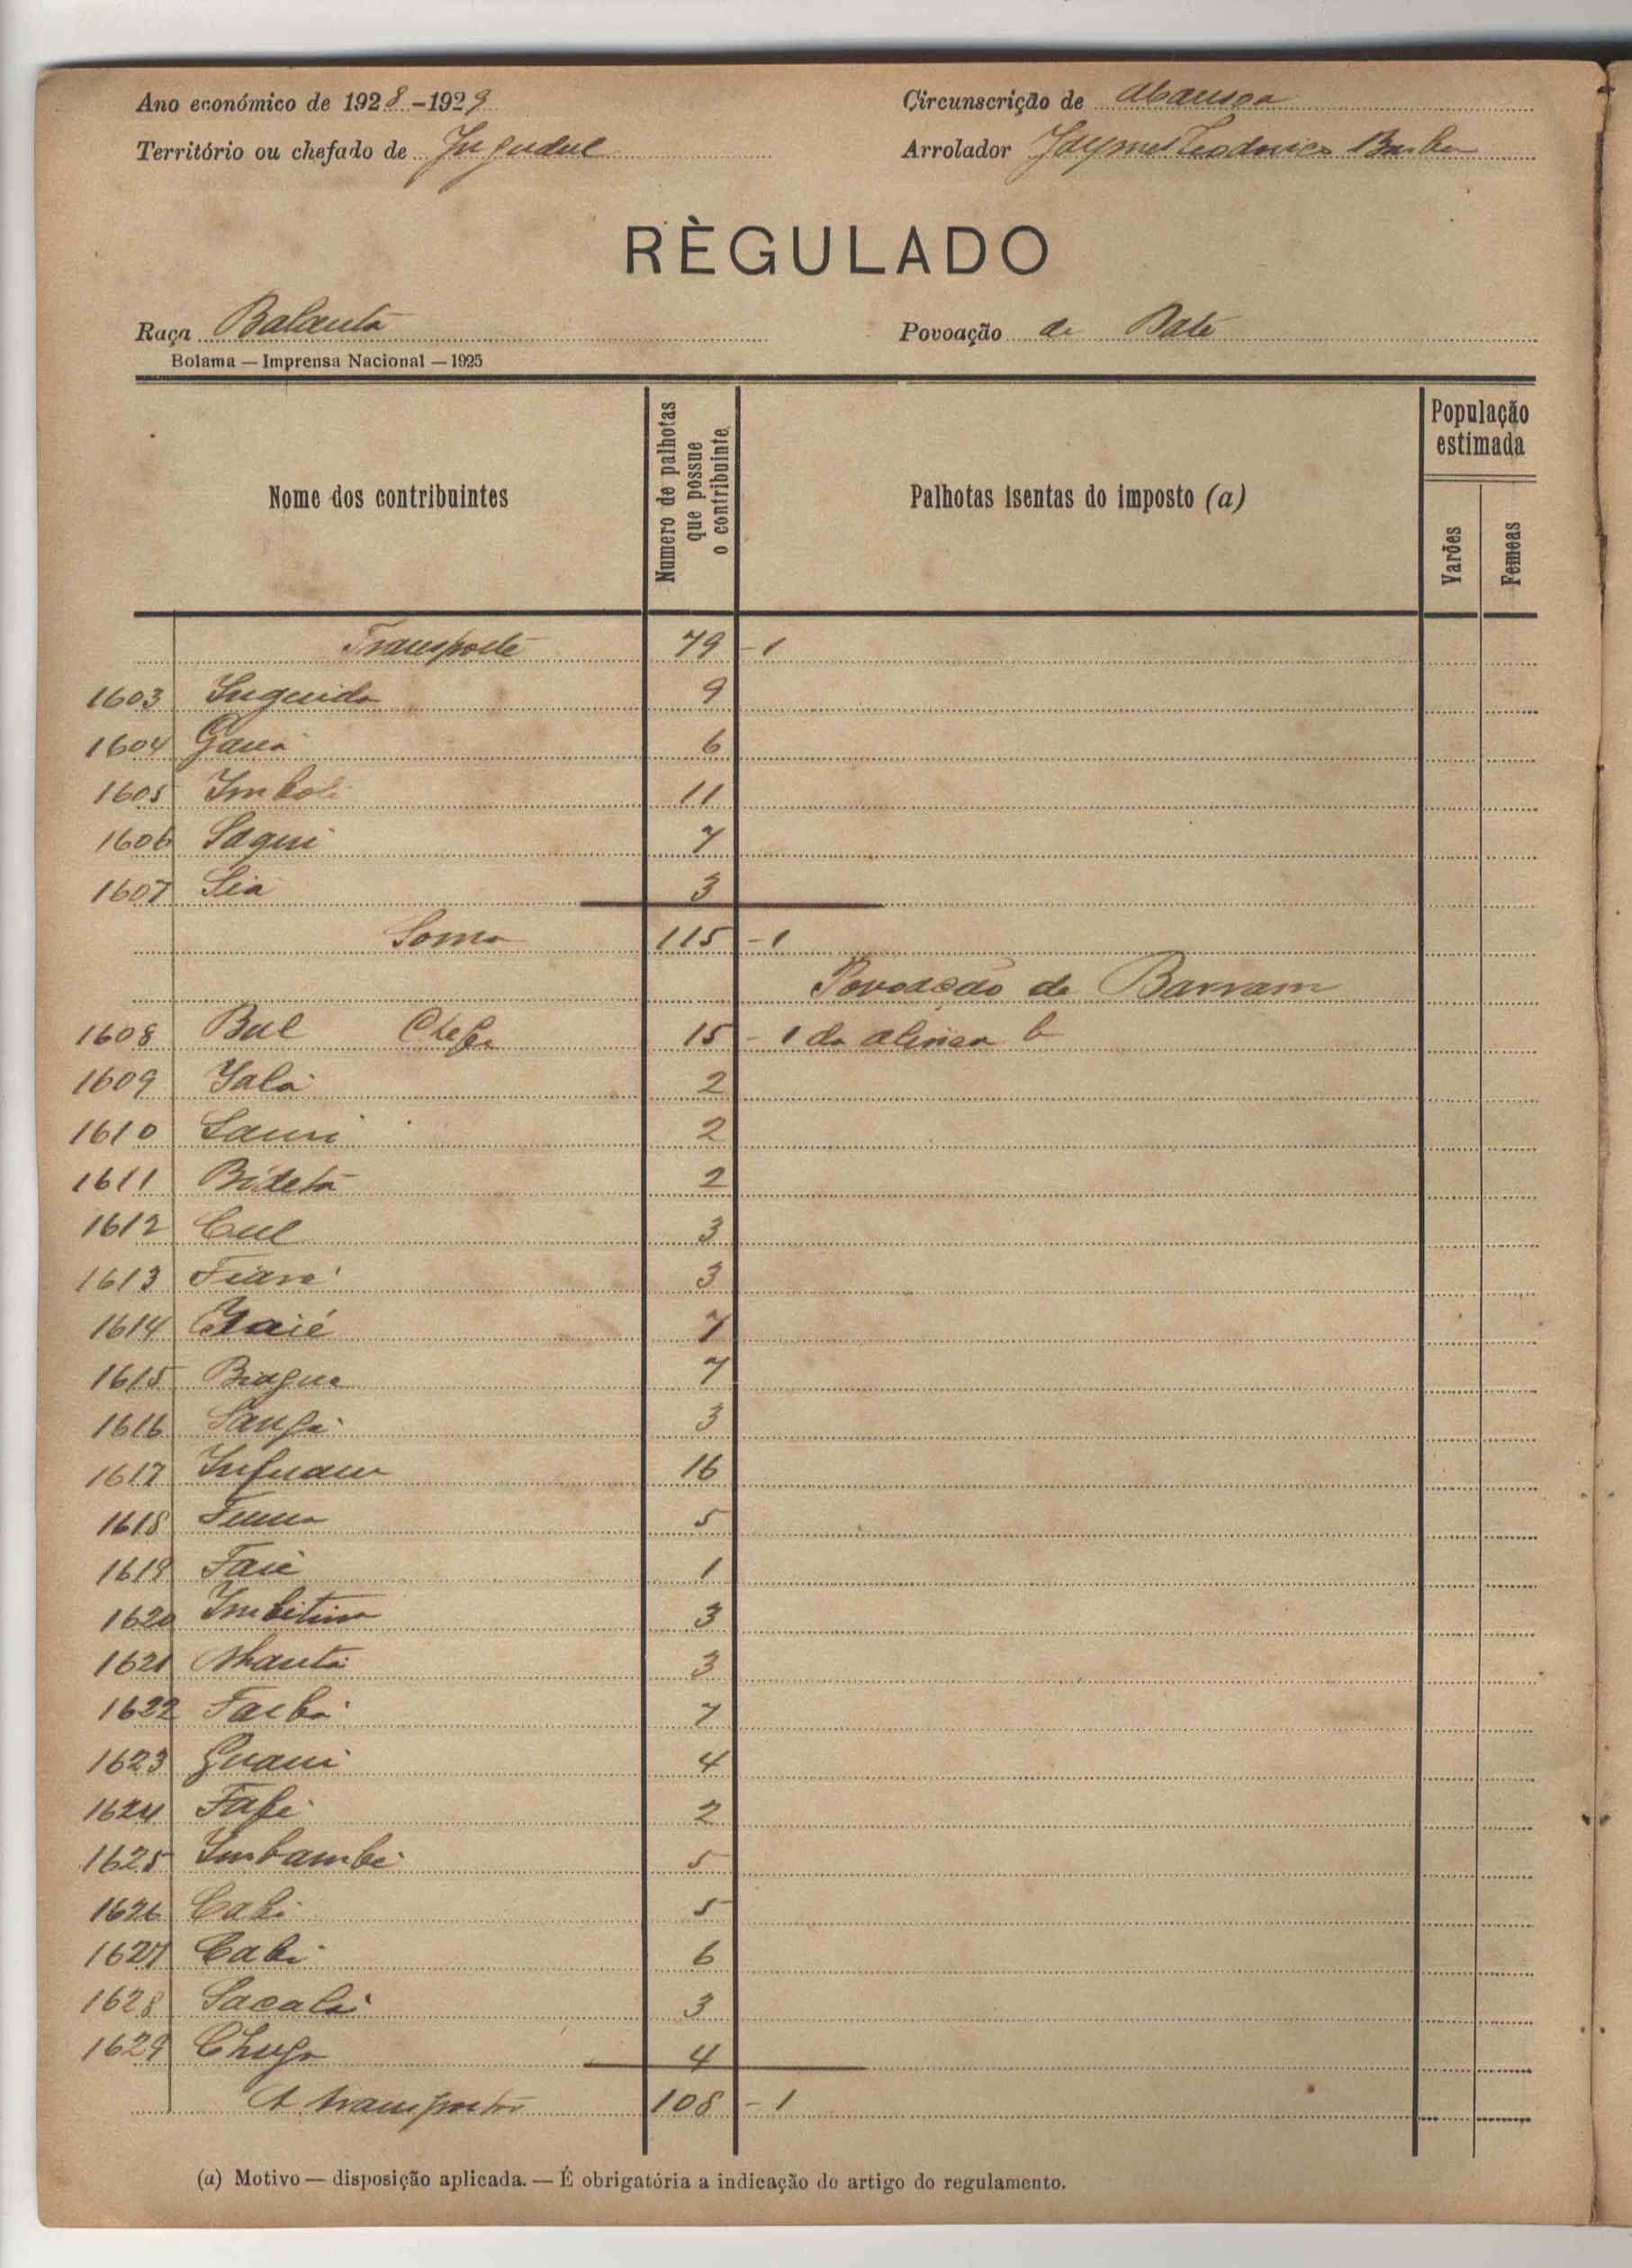 Ano económico de 1928-1929 Circunscrição de
Território ou chefado de Jugudul Arrolador Jayme Teodorico
RÈGULADO
Raça Balanta Povoação de Date
Bolama — Imprensa Nacional — 1925
Nome dos contribuintes Numero de palhotas que possue o contribuinte Palhotas isentas do imposto (a) População estimada Varões Femeas
Transporte 79 - 1
1603 Inguida 9
1604 6
1605 Imboli 11
1606 Sagui 7
1607 Sia 3
Soma 115 - 1
Povoação de Barram
1608 Bul Chefe 15 - 1 da alinea b
1609 Yalá 2
1610 2
1611 Bidetá 2
1612 Cul 3
1613 3
1614 7
1615 Biague 7
1616 Sanfá 3
1617 16
1618 5
1619 Faié 1
1620 3
1621 Nhantá 3
1622 7
1623 4
1624 Fafé 2
1625 Imbambé 5
1626 Cabi 5
1627 Cabi 6
1628 Sacalá 3
1629 4
A transportar 108 - 1
(a) Motivo — disposição aplicada. — É obrigatória a indicação do artigo do regulamento.